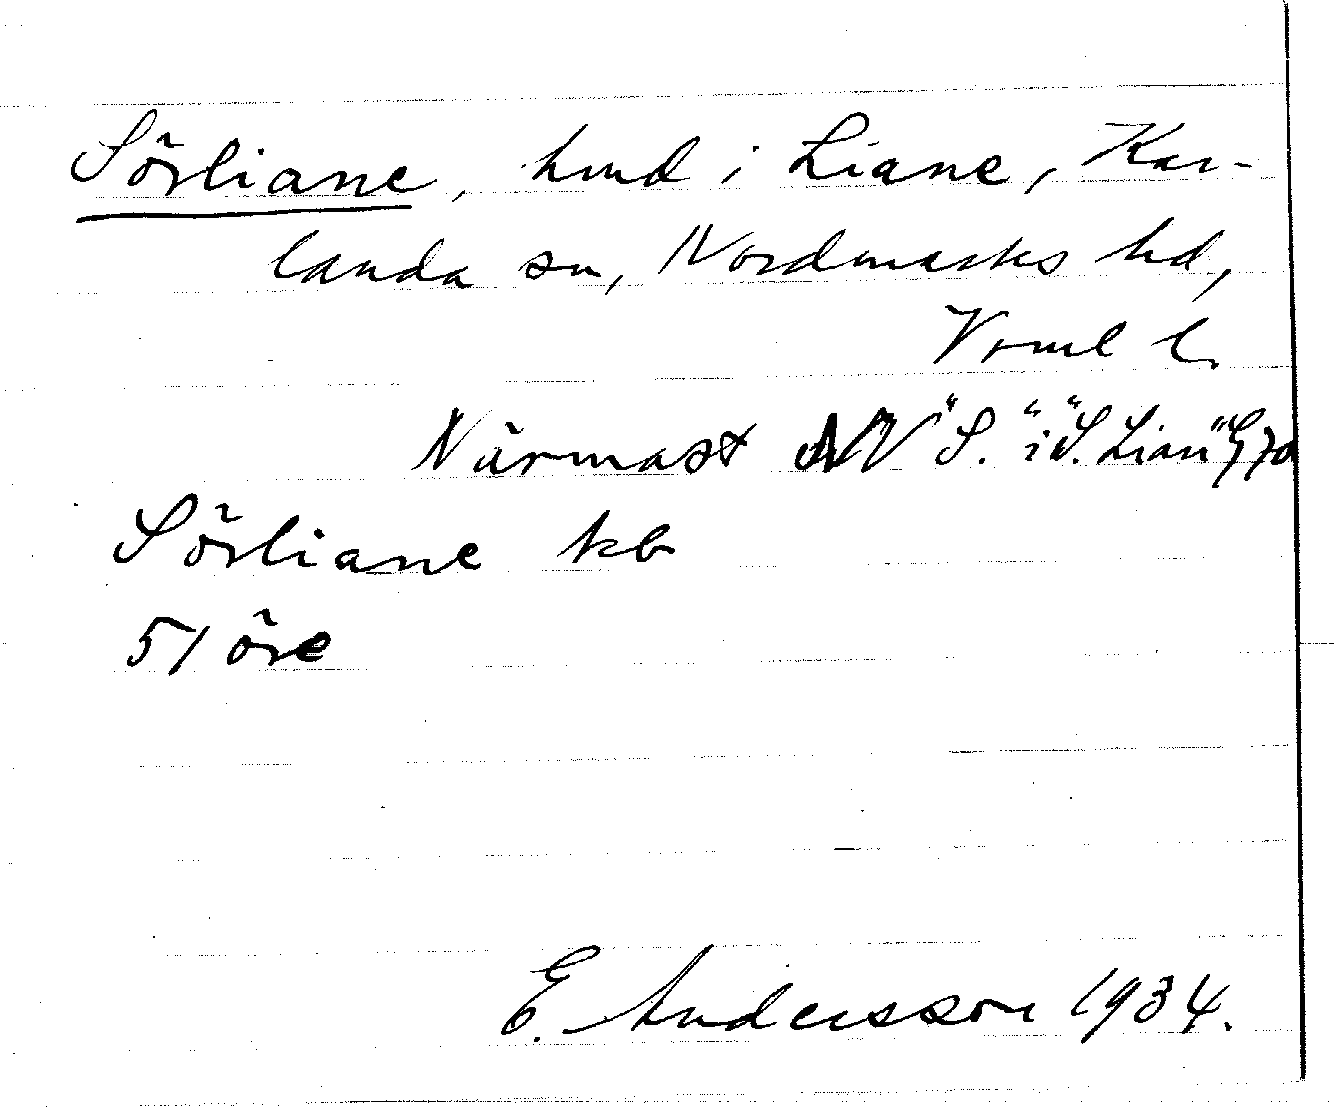 Sörliane, hmd i Liane, Kar-
landa sn, Nordmarks hd,
Vrml l.
Närmast NV "S." i "S. Lian" G70
Sörliane kb
51 öre
E. Andersson 1934.